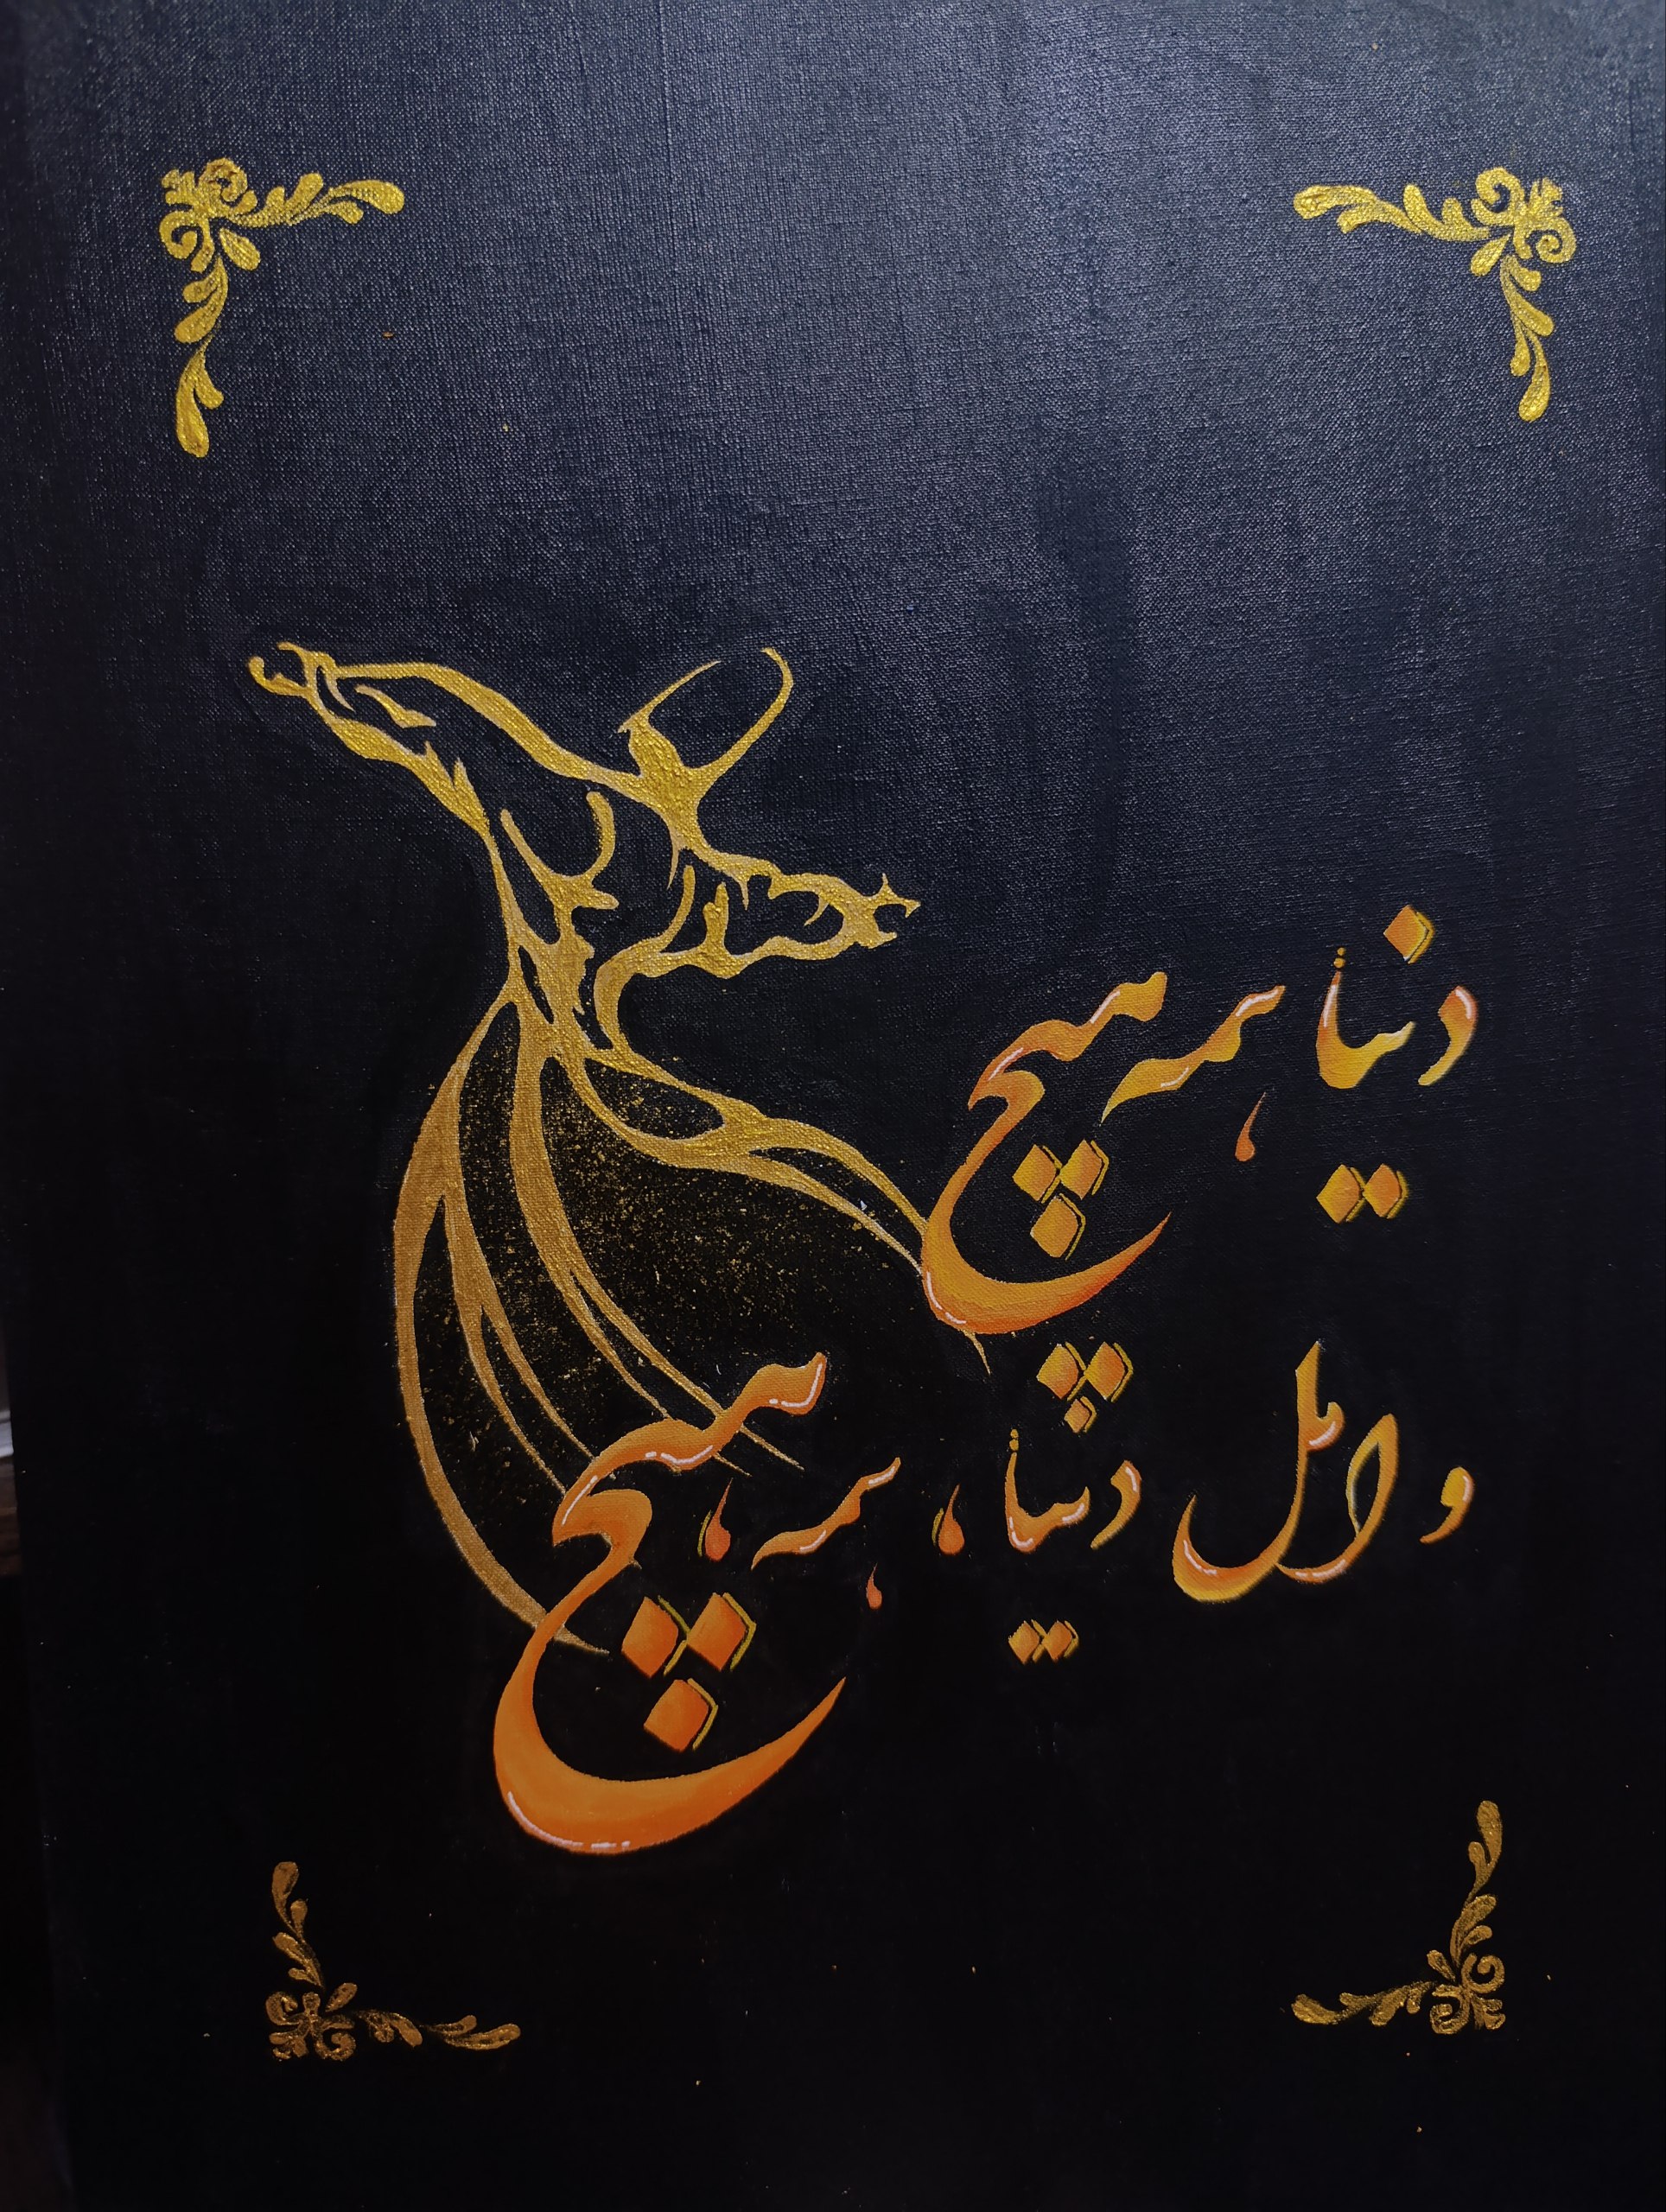 دنیا همه هیچ
و اهل دنیا همه هیچ